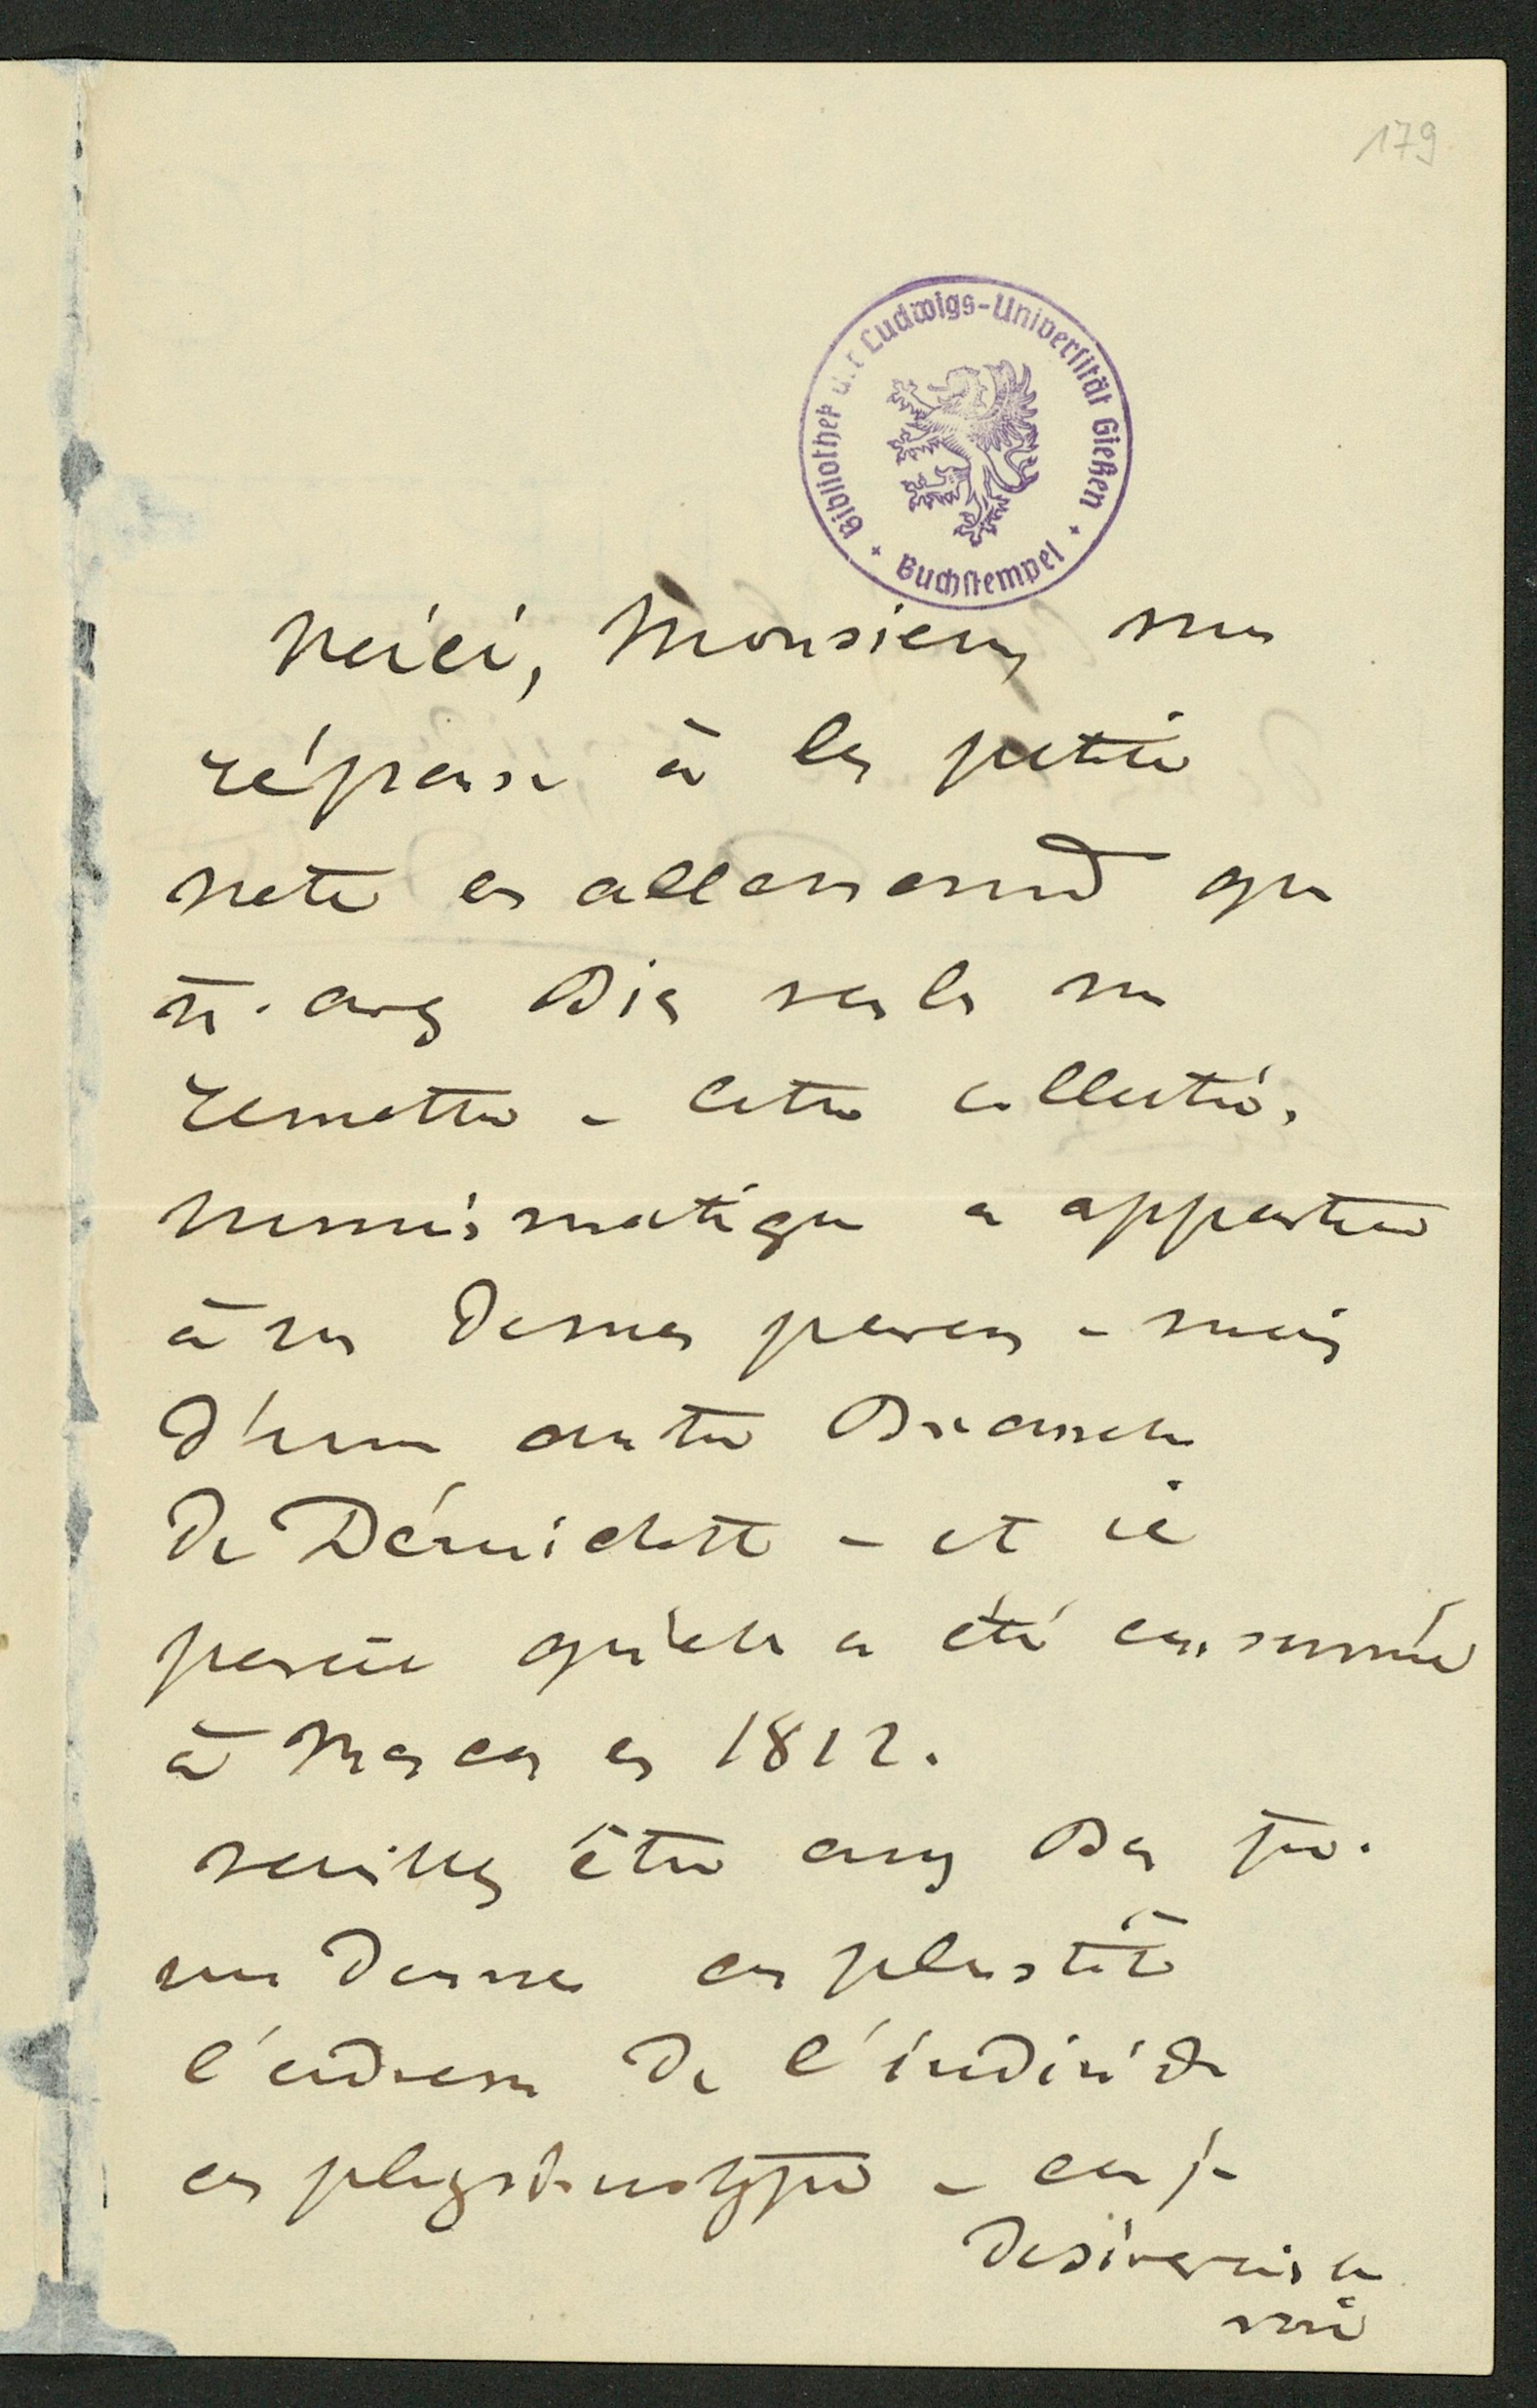 179
Bibliothek der Ludwigs-Universität Gießen
Buchstempel
Voici, Monsieur, ma
réponse à la petite
note en allemand que
v. avez bien voulu me
remettre - cette collection
numismatique a appartenu
à un de mes parens - mais
d'une autre branche
de - et je
pense qu'elle a été consumée
à Moscou en 1812.
veuillez être assez bon pr.
me donner au plustôt
l'adresse de l'individu
au physionotype - car je
désirerais le
voir